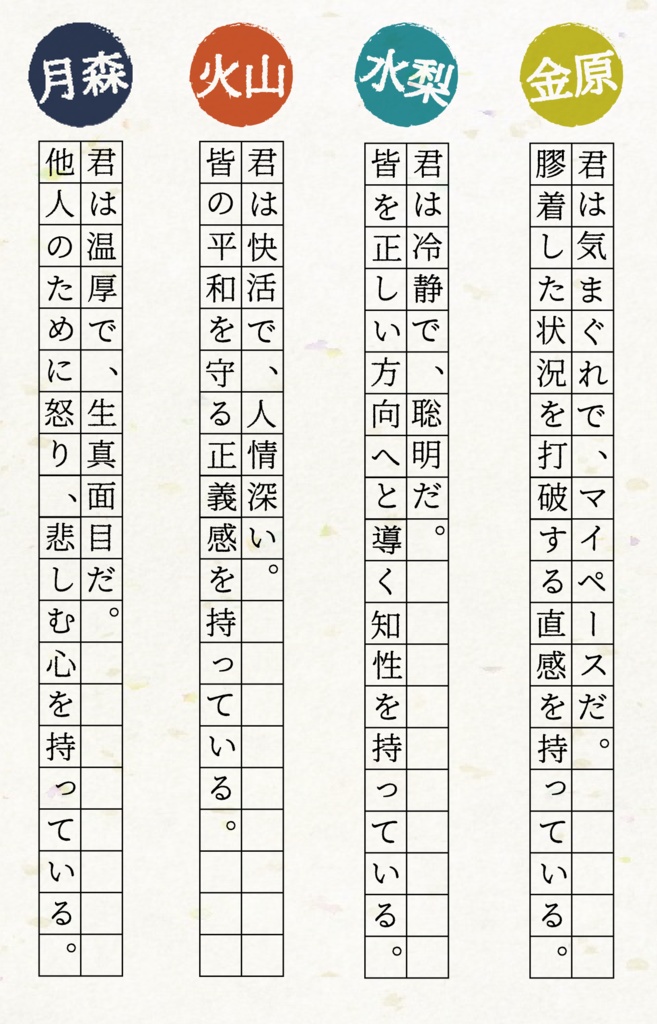 金原
君は気まぐれで、マイペースだ。
膠着した状況を打破する直感を持っている。
水梨
君は冷静で、聡明だ。
皆を正しい方向へと導く知性を持っている。
火山
君は快活で、人情深い。
皆の平和を守る正義感を持っている。
月森
君は温厚で、生真面目だ。
他人のために怒り、悲しむ心を持っている。